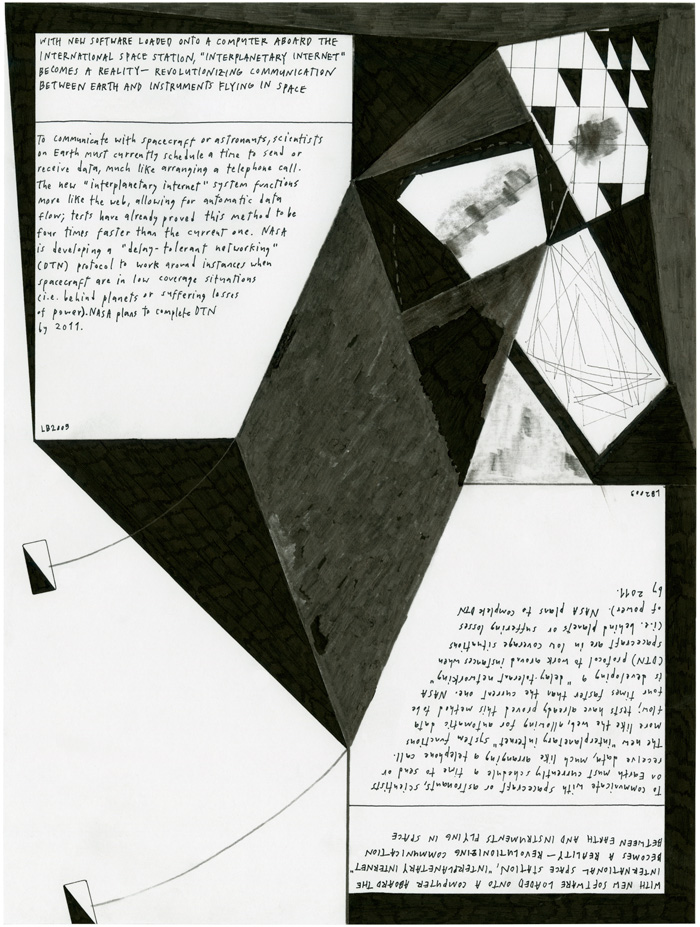 WITH NEW SOFTWARE LOADED ONTO A COMPUTER ABOARD THE
INTERNATIONAL SPACE STATION, "INTERPLANETARY INTERNET"
BECOMES A REALITY— REVOLUTIONIZING COMMUNICATION
BETWEEN EARTH AND INSTRUMENTS FLYING IN SPACE
To communicate with spacecraft or astronauts, scientists
on Earth must currently schedule a time to send or
receive data, much like arranging a telephone call.
The new "interplanetary internet" system functions
more like the web, allowing for automatic data
flow; tests have already proved this method to be
four times faster than the current one. NASA
is developing a "delay-tolerant networking"
(DTN) protocol to work around instances when
spacecraft are in low coverage situations
(i.e. behind planets or suffering losses
of power). NASA plans to complete DTN
by 2011.
LB2009
WITH NEW SOFTWARE LOADED ONTO A COMPUTER ABOARD THE
INTERNATIONAL SPACE STATION, "INTERPLANETARY INTERNET"
BECOMES A REALITY— REVOLUTIONIZING COMMUNICATION
BETWEEN EARTH AND INSTRUMENTS FLYING IN SPACE
To communicate with spacecraft or astronauts, scientists
on Earth must currently schedule a time to send or
receive data, much like arranging a telephone call.
The new "interplanetary internet" system functions
more like the web, allowing for automatic data
flow; tests have already proved this method to be
four times faster than the current one. NASA
is developing a "delay-tolerant networking"
(DTN) protocol to work around instances when
spacecraft are in low coverage situations
(i.e. behind planets or suffering losses
of power). NASA plans to complete DTN
by 2011.
LB2009